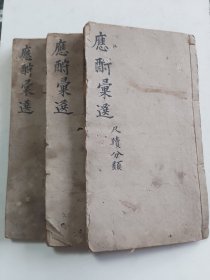 應酧彙選
應酧彙選
應酧彙選
尺牘分類